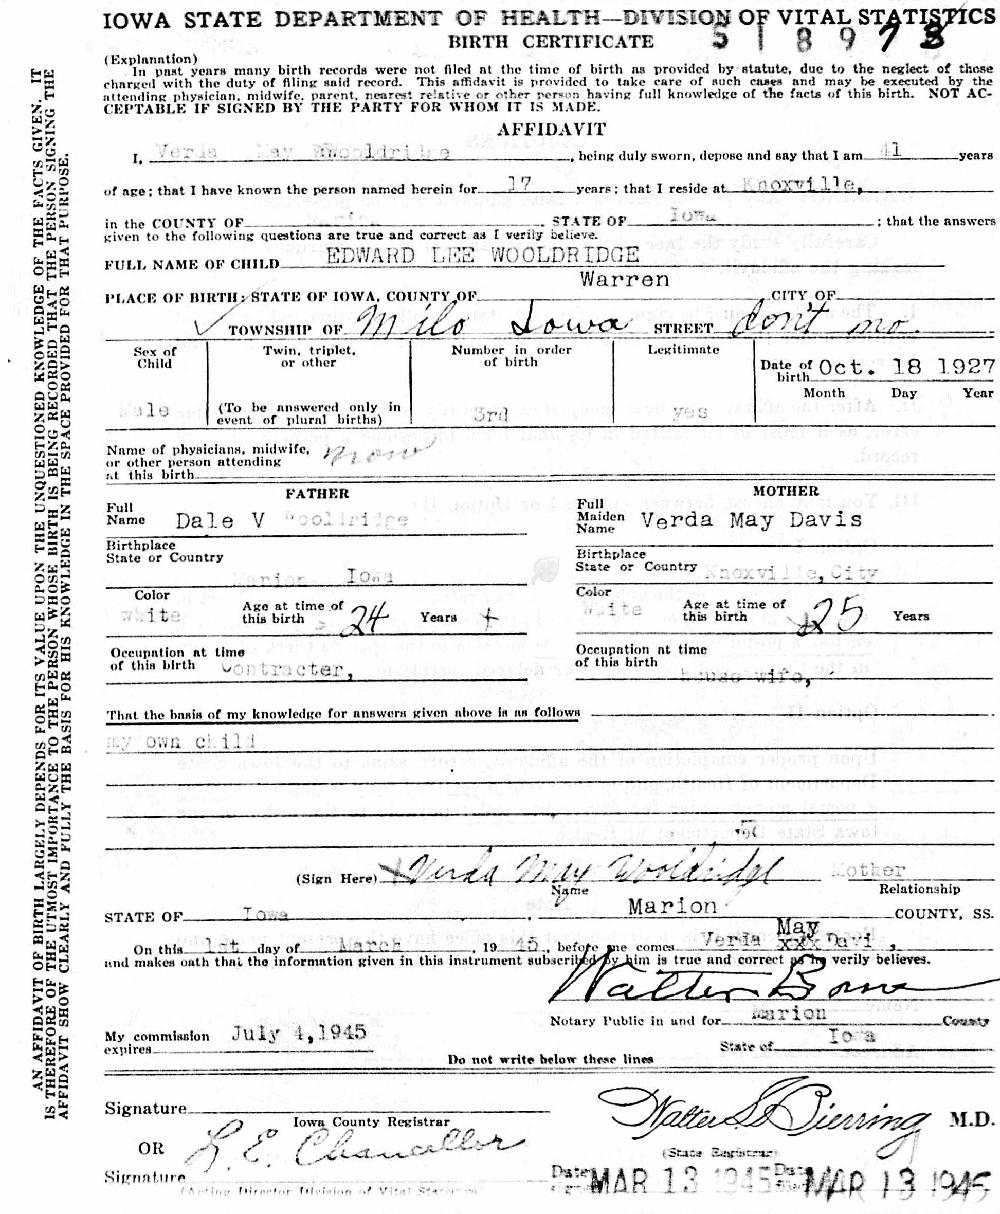 IOWA STATE DEPARTMENT OF HEALTH—DIVISION OF VITAL STATISTICS
BIRTH CERTIFICATE 518973
(Explanation)
In past years many birth records were not filed at the time of birth as provided by statute, due to the neglect of those
charged with the duty of filing said record. This affidavit is provided to take care of such cases and may be executed by the
attending physician, midwife, parent, nearest relative or other person having full knowledge of the facts of this birth. NOT AC-
CEPTABLE IF SIGNED BY THE PARTY FOR WHOM IT IS MADE.
AFFIDAVIT
I, Verda May Wooldridge, being duly sworn, depose and say that I am 41 years
of age; that I have known the person named herein for 17 years; that I reside at Knoxville,
in the COUNTY OF Marion STATE OF Iowa; that the answers
given to the following questions are true and correct as I verily believe.
FULL NAME OF CHILD EDWARD LEE WOOLDRIDGE
PLACE OF BIRTH: STATE OF IOWA, COUNTY OF Warren CITY OF
TOWNSHIP OF Milo Iowa STREET don't no.
Sex of Child Twin, triplet, or other Number in order of birth Legitimate Date of birth Oct. 18 1927
Month Day Year
Male (To be answered only in event of plural births) 3rd yes
Name of physicians, midwife,
or other person attending
at this birth
FATHER MOTHER
Full Name Dale V Wooldridge Full Maiden Name Verda May Davis
Birthplace State or Country Marion Iowa Birthplace State or Country Knoxville, City
Color white Age at time of this birth 24 Years Color White Age at time of this birth 25 Years
Occupation at time of this birth Contracter, Occupation at time of this birth house wife,
That the basis of my knowledge for answers given above is as follows
my own child
(Sign Here) Verda May Wooldridge Mother
Name Relationship
STATE OF Iowa Marion COUNTY, SS.
On this 1st day of March 1945, before me comes Verda May xxx Davi,
and makes oath that the information given in this instrument subscribed by him is true and correct as he verily believes.
Walter
Notary Public in and for Marion County
My commission expires July 4, 1945 State of Iowa
Do not write below these lines
Signature
Iowa County Registrar
Walter L. Bierring M.D.
(State Registrar)
OR L. E. Chancellor
Signature
(Acting Director Division of Vital Statistics)
Date MAR 13 1945 Date MAR 13 1945
AN AFFIDAVIT OF BIRTH LARGELY DEPENDS FOR ITS VALUE UPON THE UNQUESTIONED KNOWLEDGE OF THE FACTS GIVEN. IT
IS THEREFORE OF THE UTMOST IMPORTANCE TO THE PERSON WHOSE BIRTH IS BEING RECORDED THAT THE PERSON SIGNING THE
AFFIDAVIT SHOW CLEARLY AND FULLY THE BASIS FOR HIS KNOWLEDGE IN THE SPACE PROVIDED FOR THAT PURPOSE.